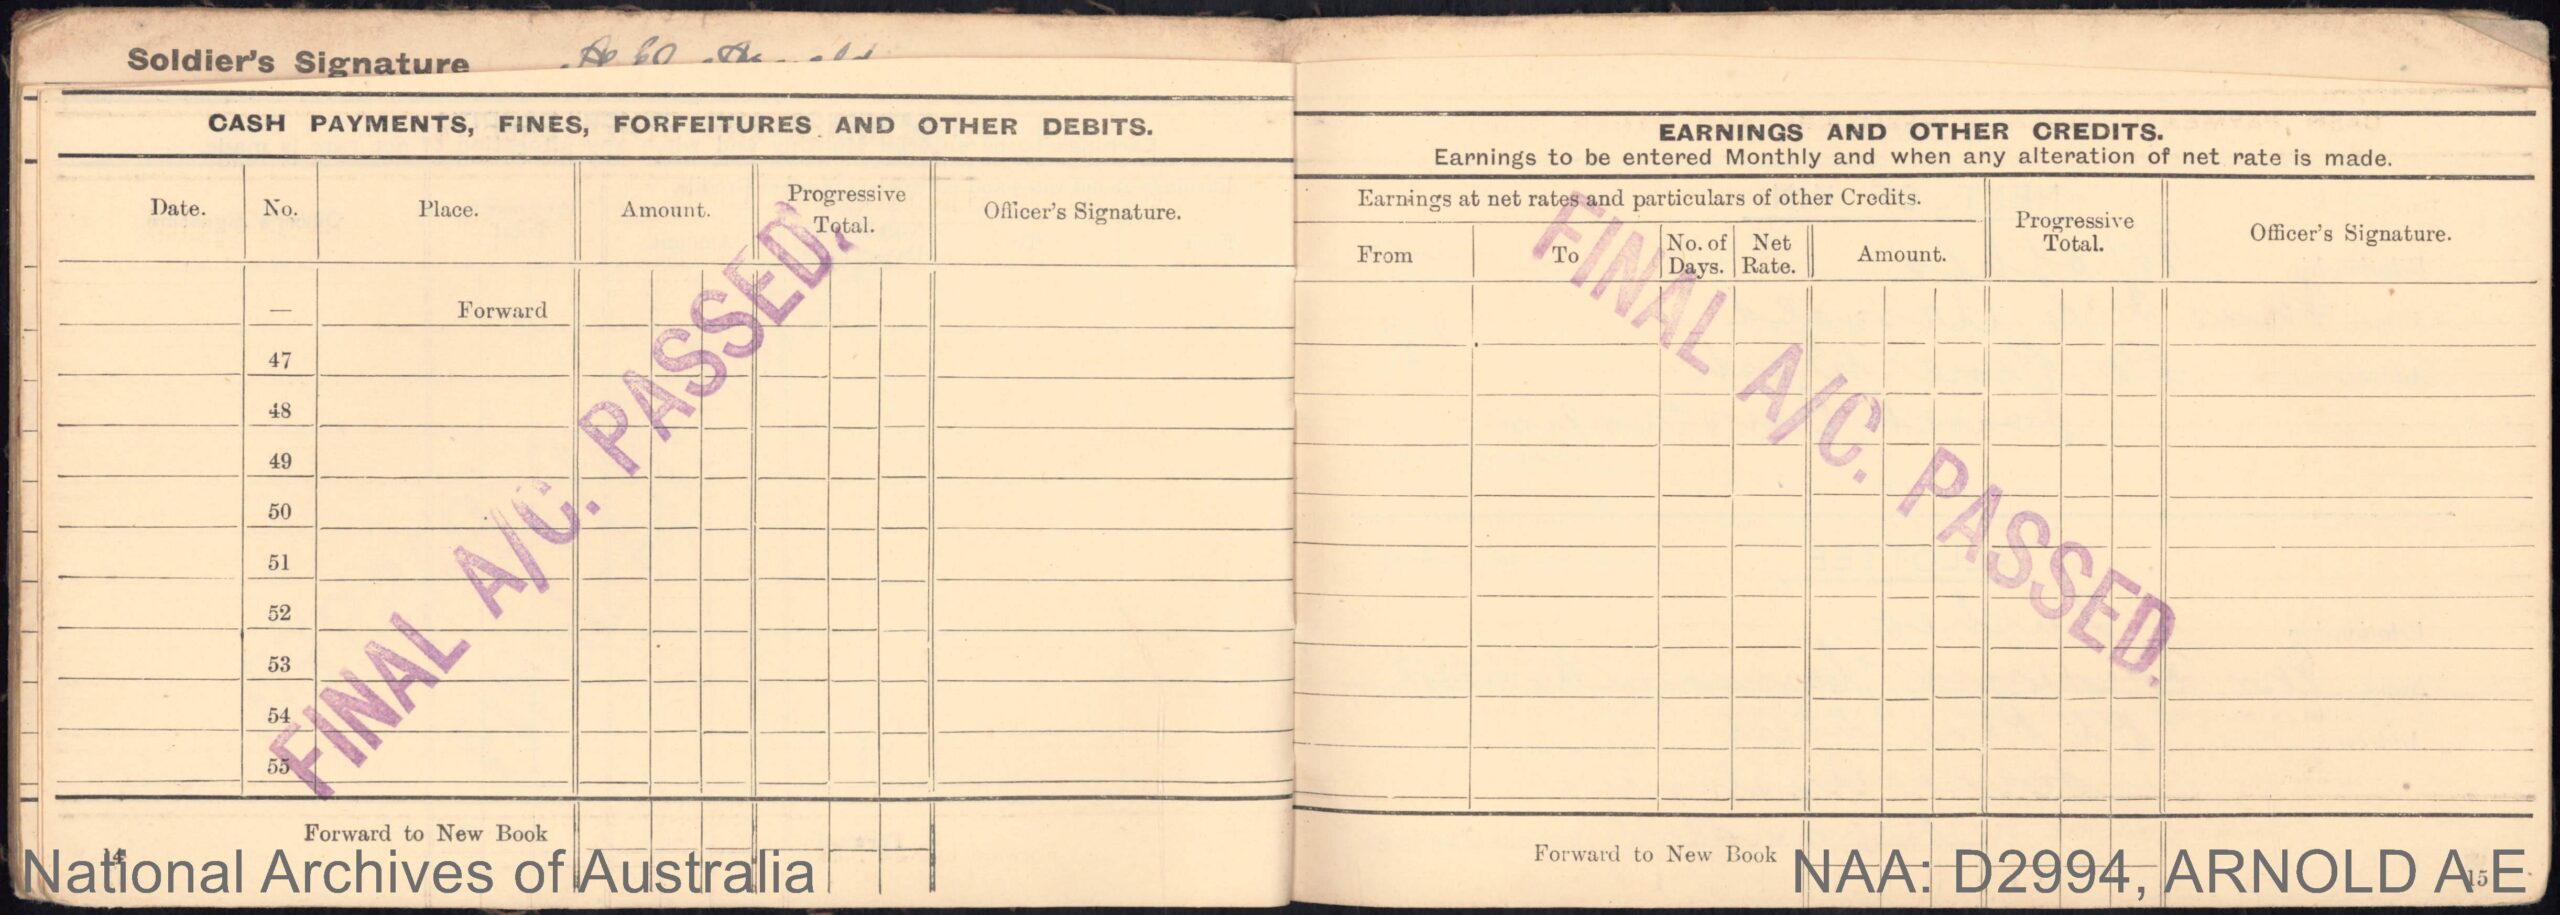 Soldier's Signature A E Arnold
CASH PAYMENTS, FINES, FORFEITURES AND OTHER DEBITS.
Date. No. Place. Amount. Progressive Total. Officer's Signature.
— Forward
47
48
49
50
51
52
53
54
55
Forward to New Book
14
FINAL A/C. PASSED.
EARNINGS AND OTHER CREDITS.
Earnings to be entered Monthly and when any alteration of net rate is made.
Earnings at net rates and particulars of other Credits. Progressive Total. Officer's Signature.
From To No. of Days. Net Rate. Amount.
Forward to New Book
15
FINAL A/C. PASSED.
National Archives of Australia
NAA: D2994, ARNOLD A E